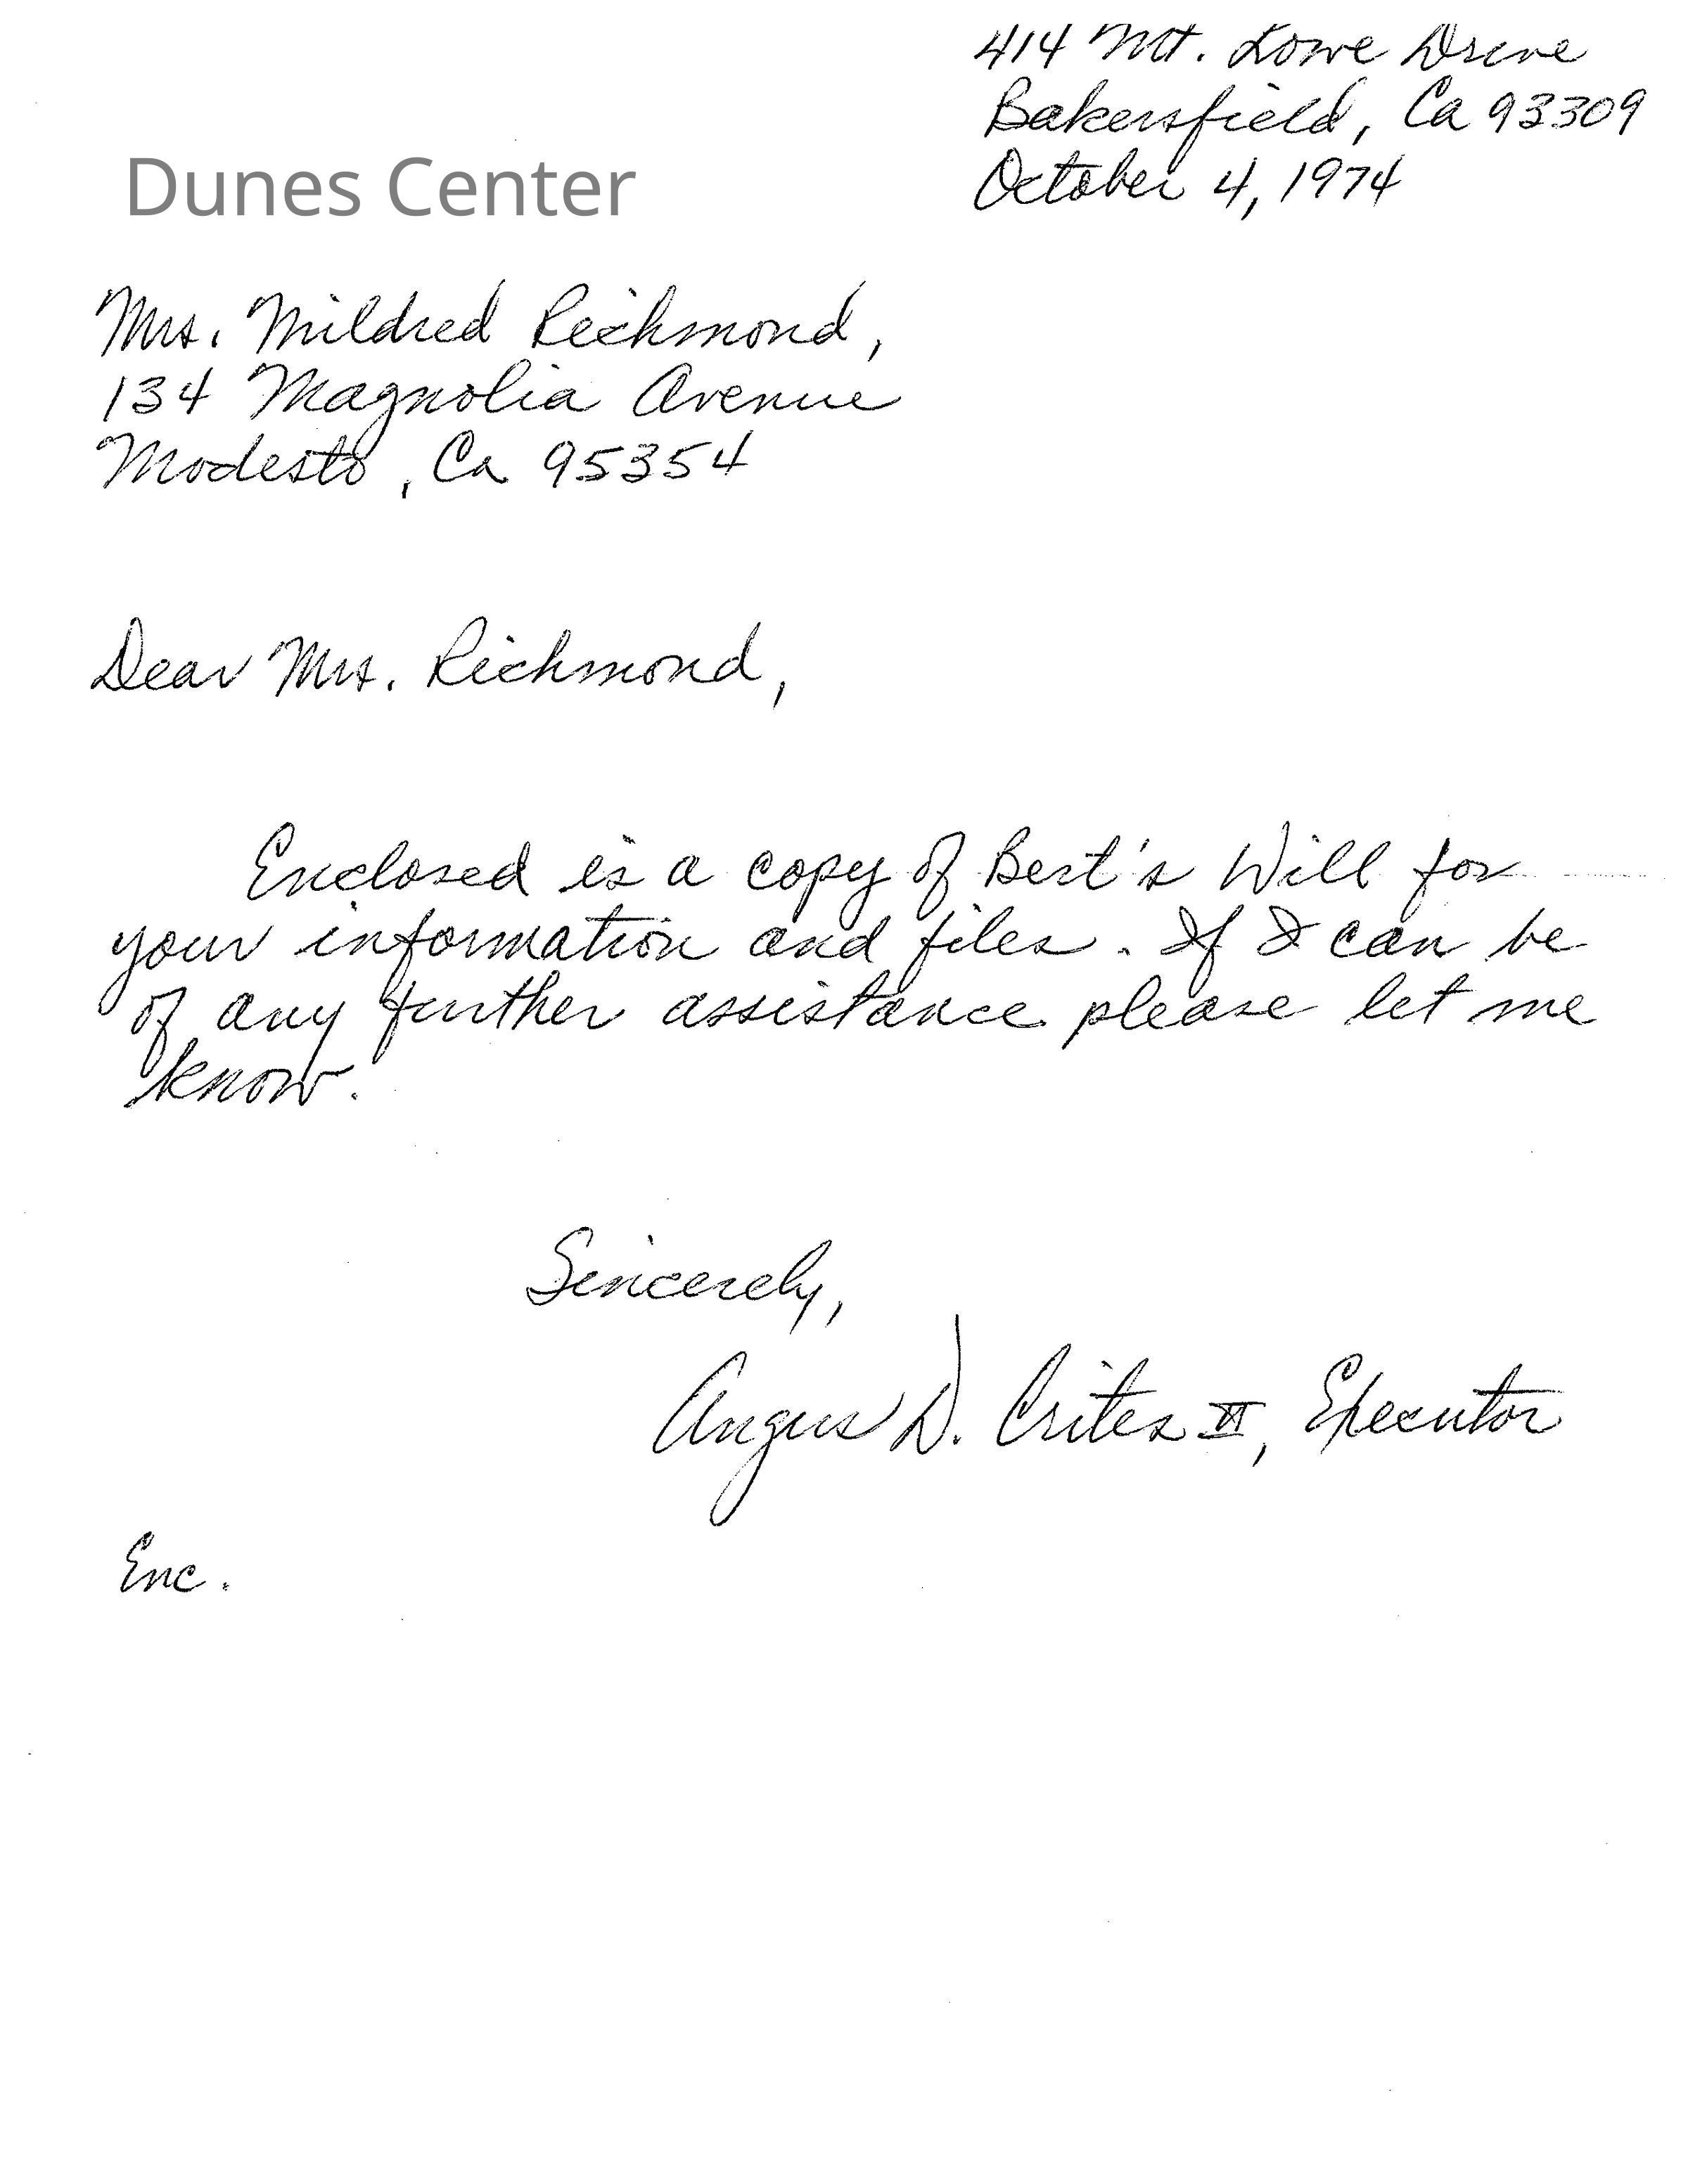 414 Mt. Lowe Drive
Bakersfield, Ca 93309
October 4, 1974
Dunes Center
Mrs. Mildred Richmond,
134 Magnolia Avenue
Modesto, Ca 95354
Dear Mrs. Richmond,
Enclosed is a copy of Bert's Will for
your information and files. If I can be
of any further assistance please let me
know.
Sincerely,
Angus D. Crites II, Executor
Enc.